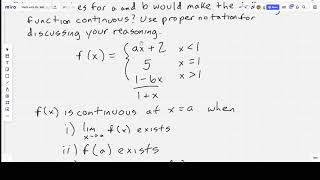 miro
es for a and b would make the
function continuous? Use proper notation for
discussing your reasoning.
ax+2 x<1
f(x) = { 5 x=1
1-bx x>1
1+x
f(x) is continuous at x=a when
i) lim f(x) exists
x→a
ii) f(a) exists